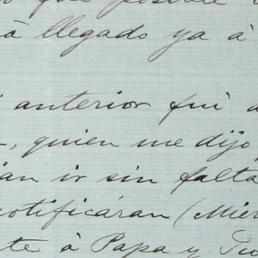 à llegado ya à
anterior fui a
quien me dijo
ir sin falta
notificáran (Mier
te à Papa y